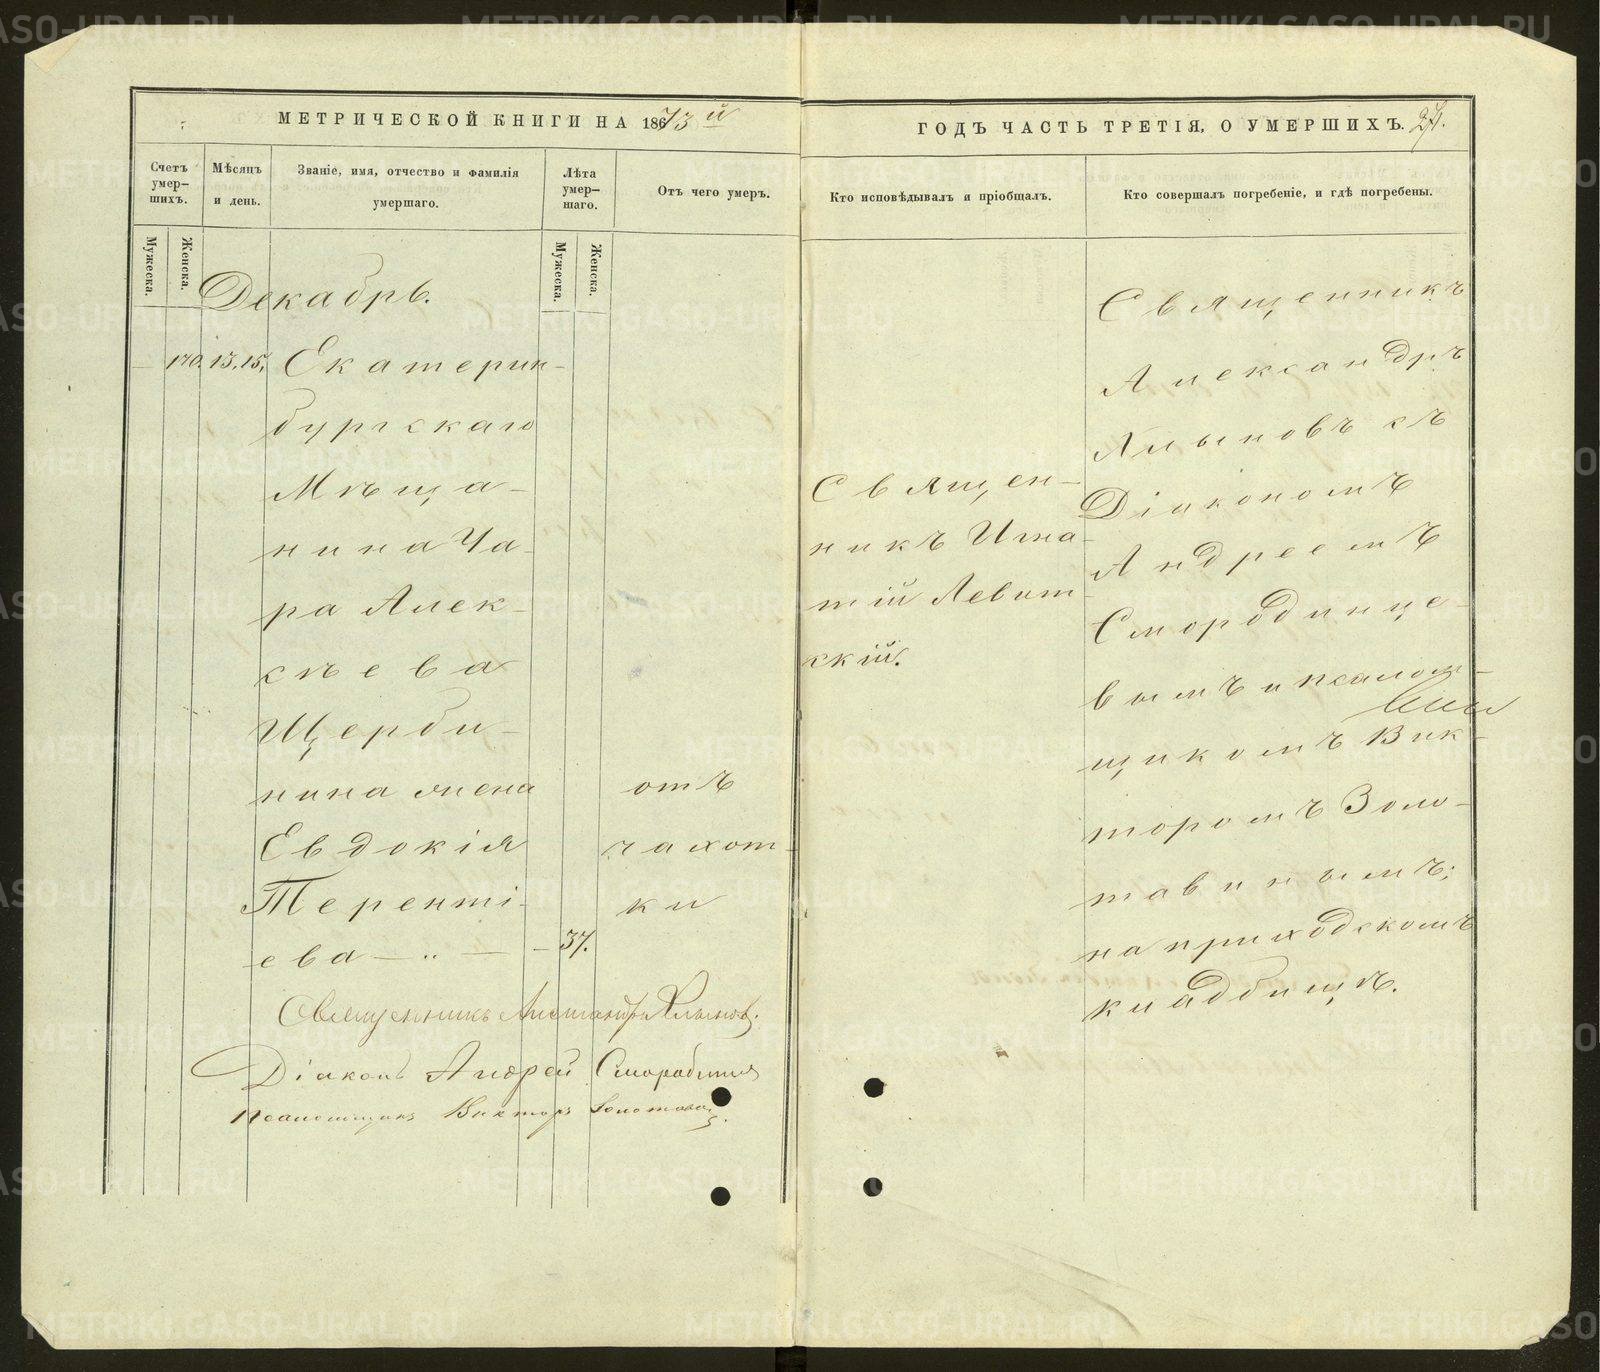 МЕТРИЧЕСКОЙ КНИГИ НА 1873й
ГОДЪ ЧАСТЬ ТРЕТІЯ, О УМЕРШИХЪ.
Счетъ умер-шихъ.
Мужеска.
Женска.
Мѣсяцъ и день.
Званіе, имя, отчество и фамилія умершаго.
Лѣта умер-шаго.
Мужеска.
Женска.
Отъ чего умеръ.
Кто исповѣдывалъ и пріобщалъ.
Кто совершалъ погребеніе, и гдѣ погребены.
Декабрь.
170. 13. 15. Екатерин-
бургскаго
Мѣща-
нина
ра Алек-
сѣева
Щерби-
нина жена
Евдокія
Теренті-
ева — „ — — 37.
отъ
чахот-
ки
Священ-
никъ Игна-
тій Левит-
скій.
Священникъ
Александръ
Хлыновъ съ
Діакономъ
Андреемъ
Смородинце-
вымъ и псалом-
щикомъ Вик-
торомъ Золо-
тавинымъ;
на приходскомъ
кладбищѣ.
Священникъ Александръ Хлыновъ.
Діаконъ Андрей Смородинцевъ
Псаломщикъ Викторъ Золотавинъ.
METRIKI.GASO-URAL.RU